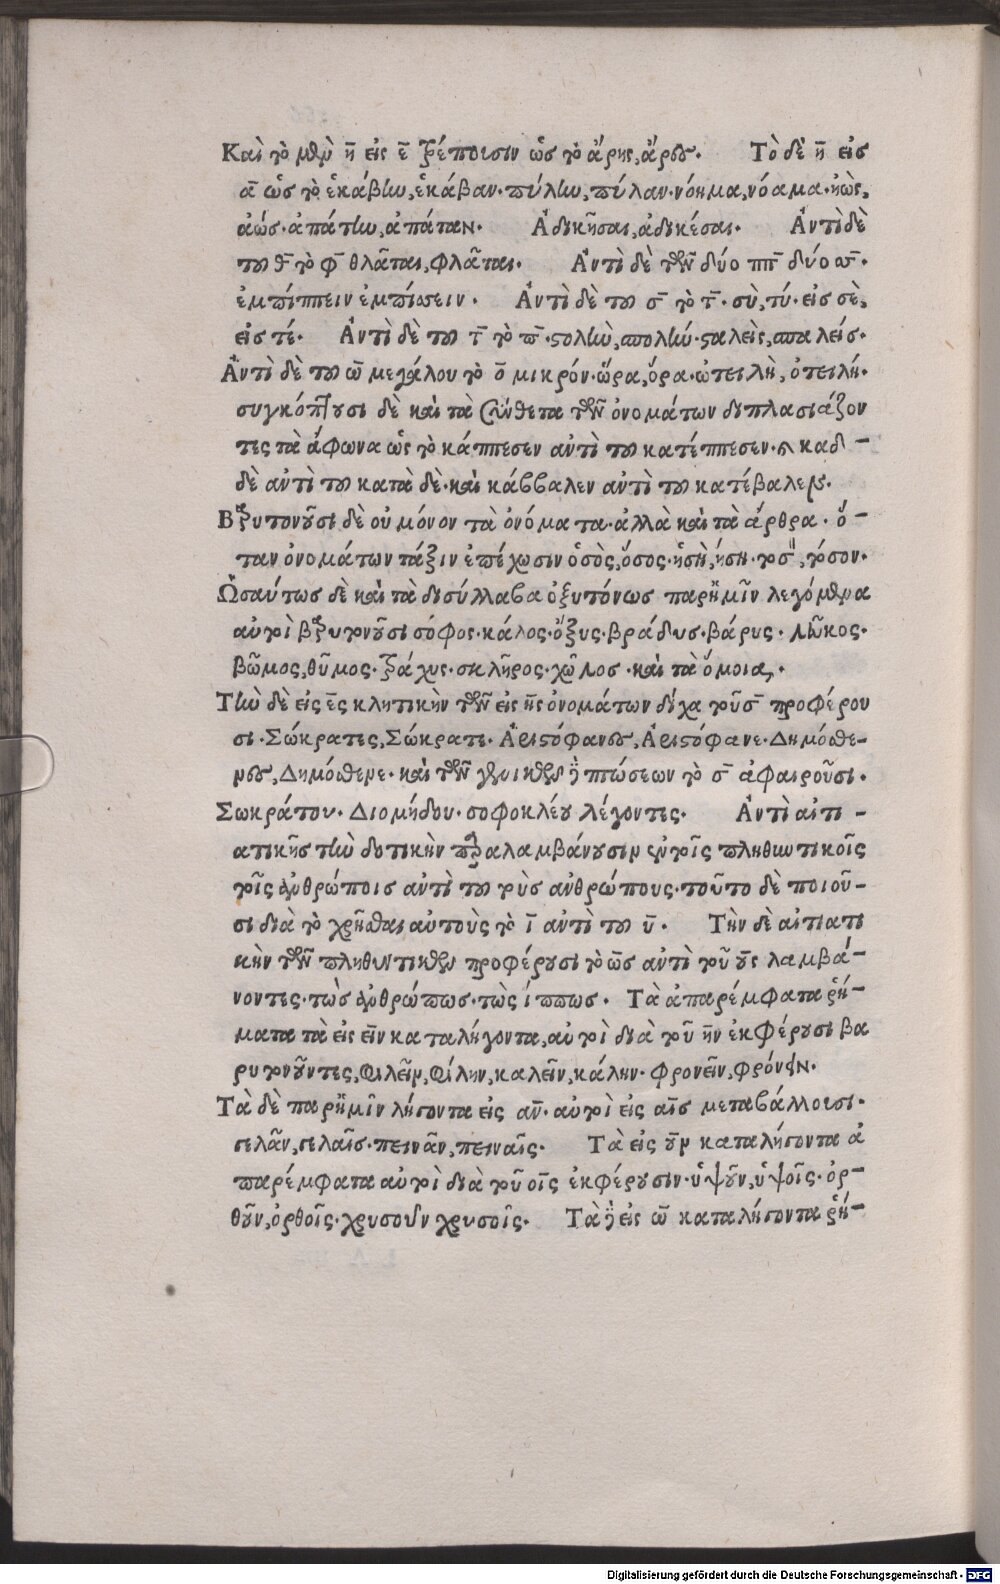 Καὶ τὸ μὲν η̄ εἰς ε̄ τρέπουσιν ὡς τὸ ἄρης, ἄρευς. Τὸ δὲ η̄ εἰς
ᾱ ὡς τὸ ἑκάβην, ἑκάβαν. πύλην, πύλαν. νόημα, νόαμα. ἠὼς,
ἀώς. ἀπάτην, ἀπάταν. Ἀδικῆσαι, ἀδικέσαι. Ἀντὶ δὲ
τοῦ θ̄ τὸ φ̄ θλᾶται, φλᾶται. Ἀντὶ δὲ τῶν δύο ππ̄ δύο
ἐμπίππειν ἐμπίσειν. Ἀντὶ δὲ τοῦ σ̄ τὸ τ̄. σὺ, τύ. εἰς σὲ,
εἰς τέ. Ἀντὶ δὲ τοῦ τ̄ τὸ π̄. στολὴν, σπολήν. σταλεὶς, σπαλείς.
Ἀντὶ δὲ τοῦ ω̄ μεγάλου τὸ ο̄ μικρόν. ὥρα, ὅρα. ὠτειλὴ, ὀτειλή.
συγκόπτουσι δὲ καὶ τὰ σύνθετα τῶν ὀνομάτων διπλασιάζον
τες τὰ ἄφωνα ὡς τὸ κάππεσεν ἀντὶ τοῦ κατέππεσεν. καὶ καδ-
δὲ ἀντὶ τοῦ κατὰ δὲ. καὶ κάββαλεν ἀντὶ τοῦ κατέβαλεν.
Βαρυτονοῦσι δὲ οὐ μόνον τὰ ὀνόματα. ἀλλὰ καὶ τὰ ἄρθρα. ὅ-
ταν ὀνομάτων τάξιν ἐπέχωσιν ὁσὸς, ὅσος. ἡσὴ, ἥση. τοσ, τόσον.
Ὡσαύτως δὲ καὶ τὰ δισύλλαβα ὀξυτόνως παρ' ἡμῖν λεγόμενα
αὐτοὶ βαρυτονοῦσι σόφος. κάλος. ὄξυς. βράδυς. βάρυς. λεῦκος.
βῶμος, θῦμος. τράχυς. σκλῆρος. χῶλος. καὶ τὰ ὅμοια.
Τὴν δὲ εἰς ε̄ς κλητικὴν τῶν εἰς η̄ς ὀνομάτων δίχα τοῦ σ̄ προφέρου
σι. Σώκρατες, Σώκρατε. Ἀριστόφανες, Ἀριστόφανε. Δημόσθε-
νες, Δημόσθενε. καὶ τῶν γενικῶν δὲ πτώσεων τὸ σ̄ ἀφαιροῦσι.
Σωκράτου. Διομήδου. σοφοκλέου λέγοντες. Ἀντὶ αἰτι-
ατικῆς τὴν δοτικὴν παραλαμβάνουσιν ἐν τοῖς πληθυντικοῖς
τοῖς ἀνθρώποις ἀντὶ τοῦ τοὺς ἀνθρώπους. τοῦτο δὲ ποιοῦ-
σι διὰ τὸ χρῆσθαι αὐτοὺς τὸ ῑ ἀντὶ τοῦ ῡ. Τὴν δὲ αἰτιατι
κὴν τῶν πληθυντικῶν προφέρουσι τὸ ω̄ς ἀντὶ τοῦ οῡς λαμβά-
νοντες. τὼς ἀνθρώπως. τὼς ἵππως. Τὰ ἀπαρέμφατα ῥή-
ματα τὰ εἰς εῖν καταλήγοντα, αὐτοὶ διὰ τοῦ η̄ν ἐκφέρουσι βα
ρυτονοῦντες, φιλεῖν, φίλην, καλεῖν, κάλην. φρονεῖν, φρόνην.
Τὰ δὲ παρ' ἡμῖν λήγοντα εἰς ᾱν. αὐτοὶ εἰς αῖς μεταβάλλουσι.
γελᾶν, γελαῖς. πεινᾶν, πειναῖς. Τὰ εἰς οῦν καταλήγοντα ἀ
παρέμφατα αὐτοὶ διὰ τοῦ οῖς ἐκφέρουσιν. ὑψοῦν, ὑψοῖς. ὀρ-
θοῦν, ὀρθοῖς. χρυσοῦν χρυσοῖς. Τὰ δὲ εἰς ω̄ καταλήγοντα ῥή-
Digitalisierung gefördert durch die Deutsche Forschungsgemeinschaft - DFG